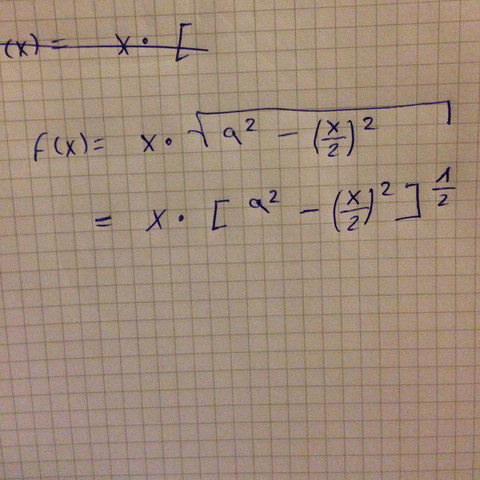 (x) = x · [
f(x) = x · √(a² − (x/2)²)
= x · [ a² − (x/2)² ]^(1/2)